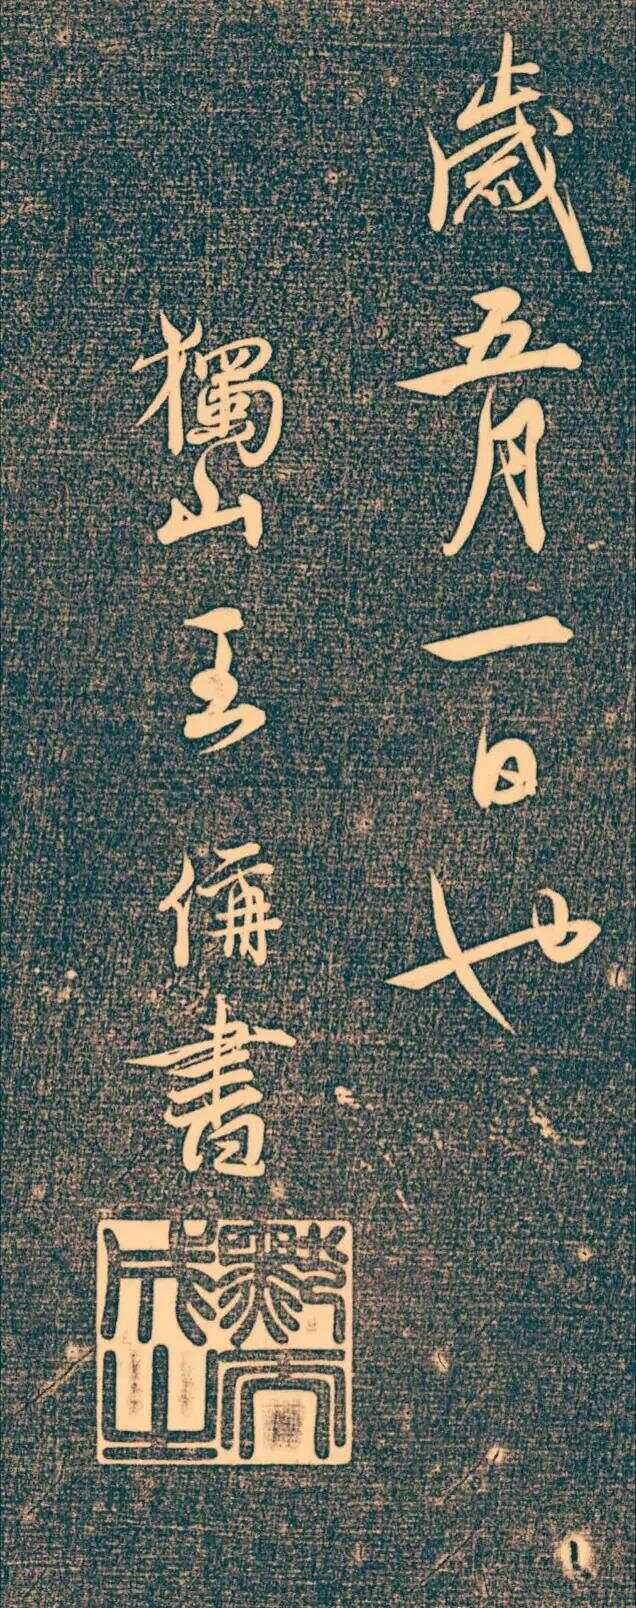 歲五月一日也
獨山王備書